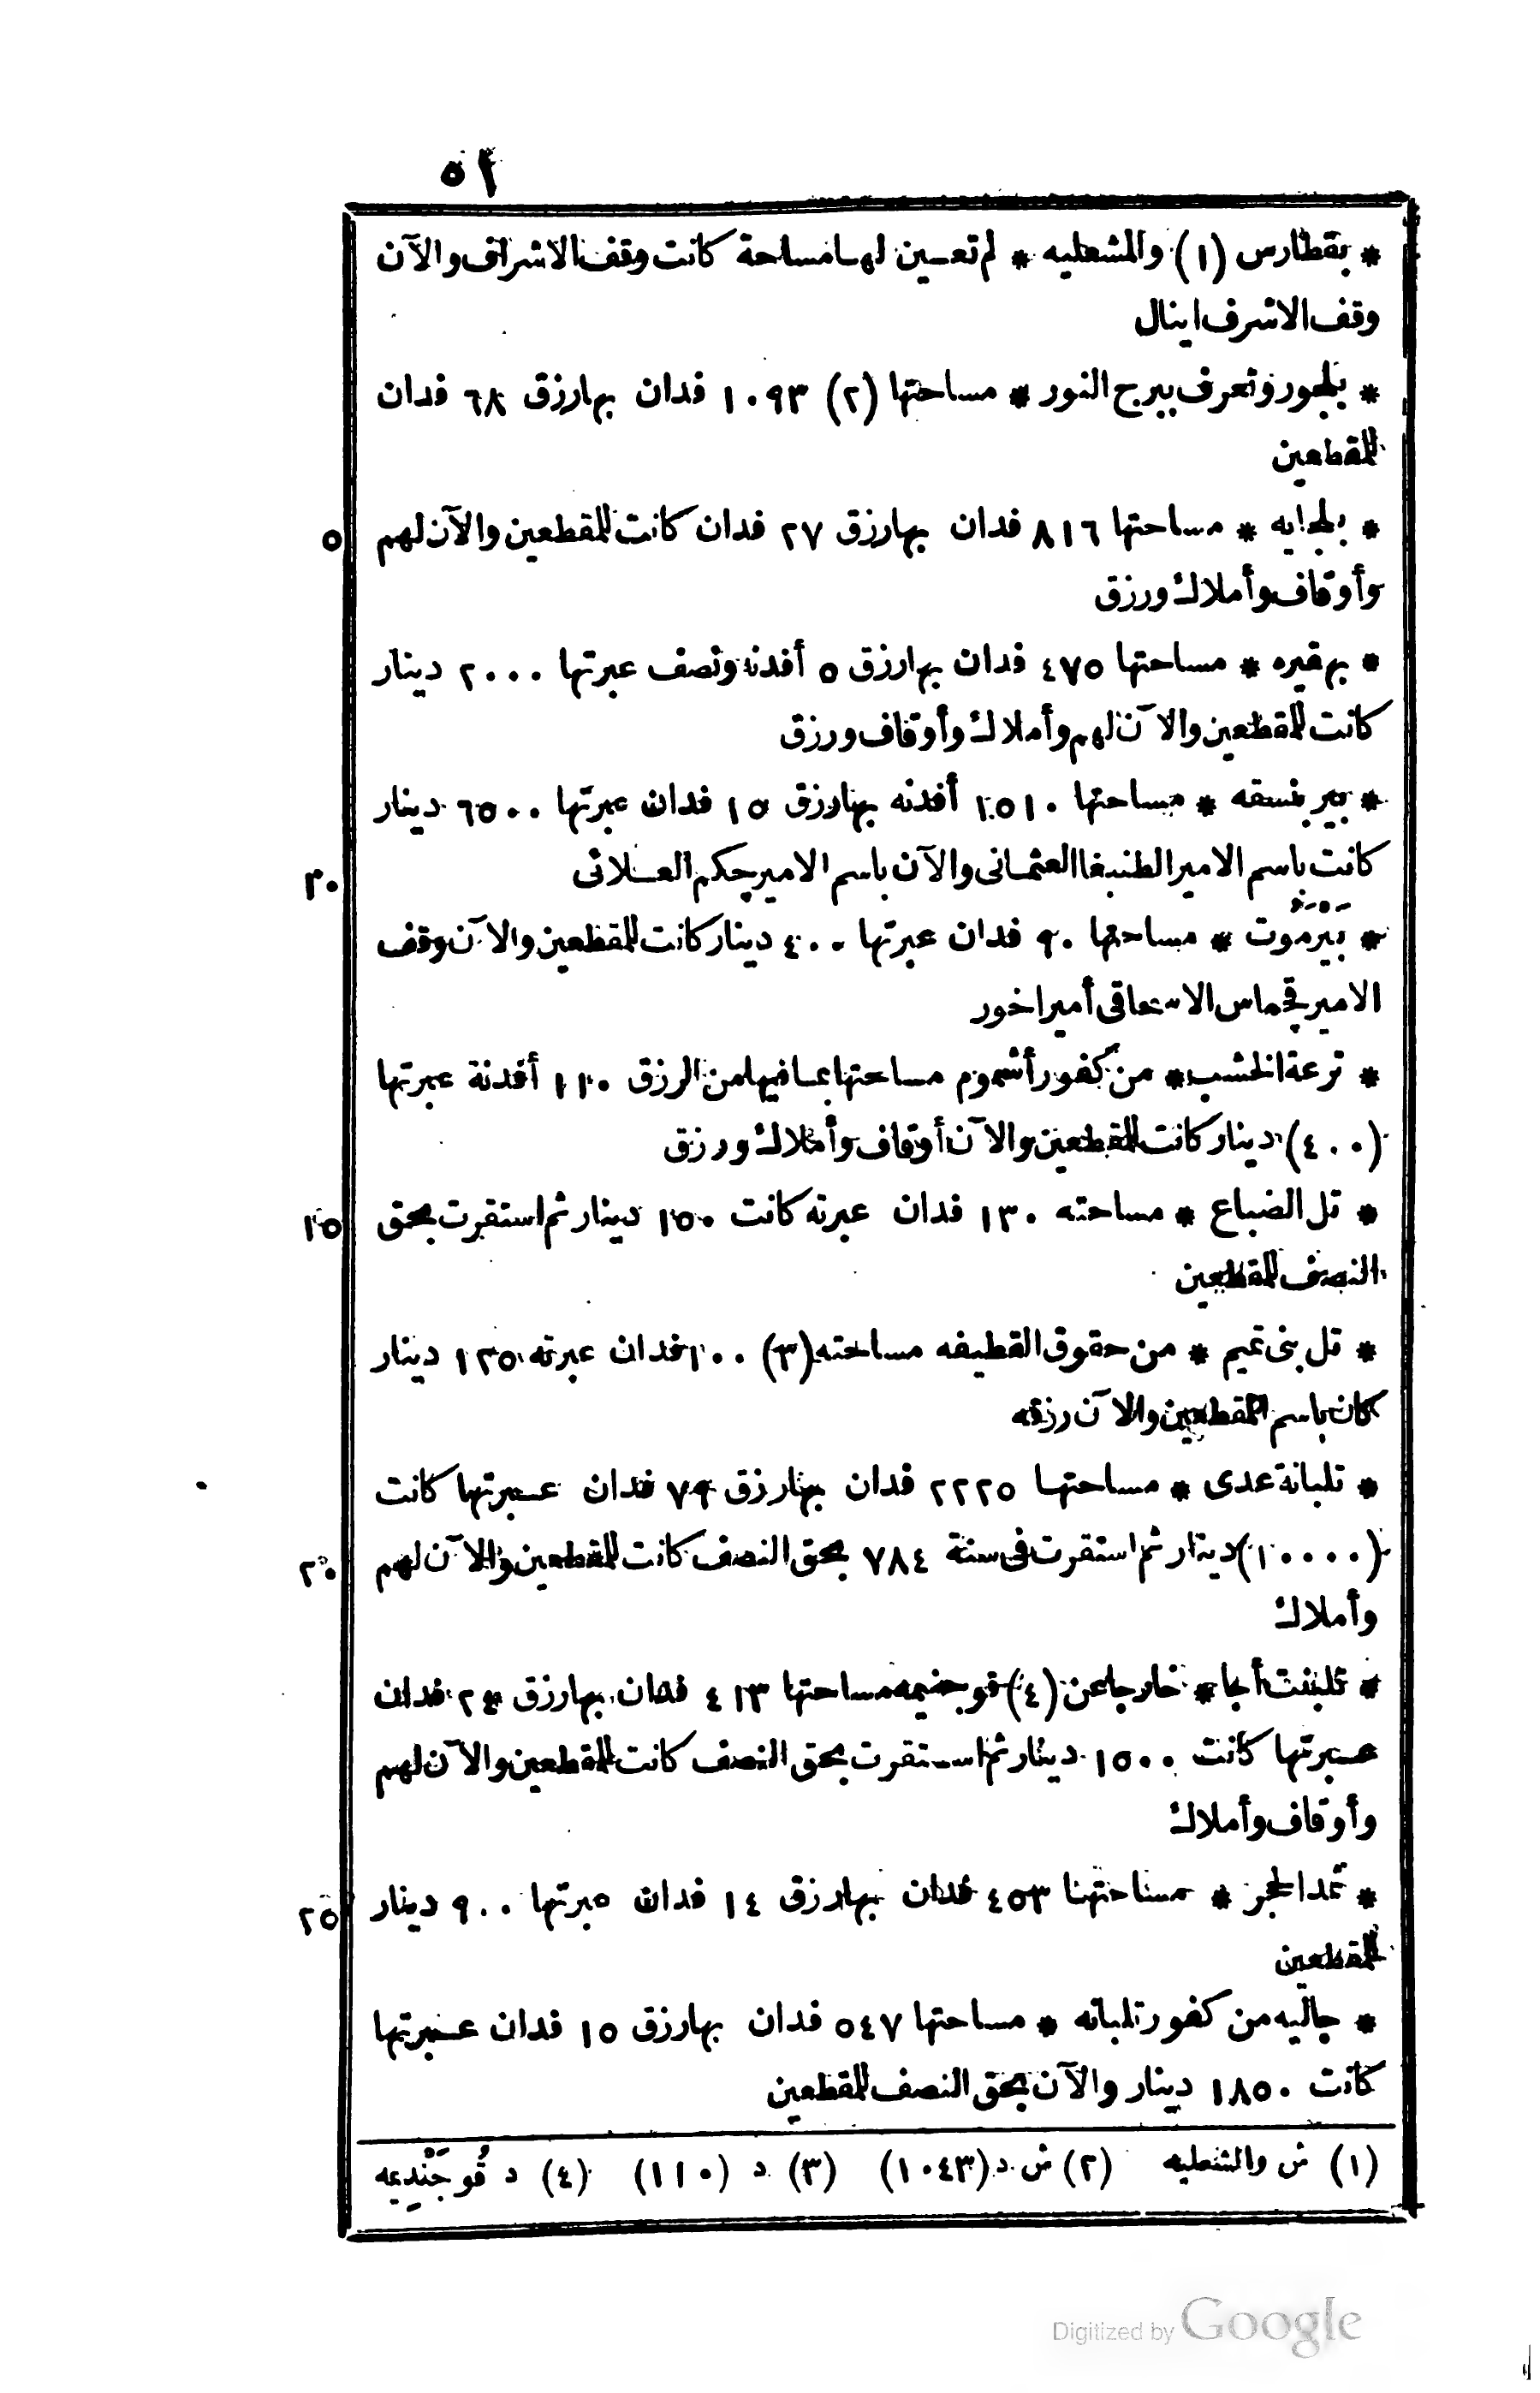 ٥١
* بقطارس (١) والمشعليه * لم تعين لها مساحة كانت وقف الاشراف والآن
وقف الاشرف اينال
* بلجور وتعرف ببرج النور * مساحتها (٢) ١٠٩٣ فدان بهارزق ٦٨ فدان
للمقطعين
* بلجايه * مساحتها ٨١٦ فدان بهارزق ٢٧ فدان كانت للمقطعين والآن لهم
٥
وأوقاف وأملاك ورزق
* بهقيره * مساحتها ٤٧٥ فدان بهارزق ٥ أفدنه ونصف عبرتها ٢٠٠٠ دينار
كانت للمقطعين والآن لهم وأملاك وأوقاف ورزق
* بير بنسقه * مساحتها ١٥١٠ أفدنه بهارزق ١٥ فدان عبرتها ٦٥٠٠ دينار
كانت باسم الامير الطنبغا العثمانى والآن باسم الامير جكم العلائى
١٠
* بيرموت * مساحتها ٩٠ فدان عبرتها ٤٠٠ دينار كانت للمقطعين والآن وقف
الامير قجماس الاسحاقى أميراخور
* ترعة الخشب * من كفور أشموم مساحتها بما فيها من الرزق ١١٠ أفدنة عبرتها
(٤٠٠) دينار كانت للمقطعين والآن أوقاف وأملاك ورزق
* تل الضباع * مساحته ١٣٠ فدان عبرته كانت ١٥٠ دينار ثم استقرت بحق
١٥
النصف للمقطعين
* تل بنى تميم * من حقوق القطيفه مساحته (٣) ١٠٠ فدان عبرته ١٢٥ دينار
كان باسم المقطعين والآن رزقه
* تلبانة عدى * مساحتها ٢٢٢٥ فدان بهارزق ٧٩ فدان عبرتها كانت
(١٠٠٠٠) دينار ثم استقرت فى سنة ٧٨٤ بحق النصف كانت للمقطعين والآن لهم
٢٠
وأملاك
* تلبنت أجا * خارجا عن (٤) قوجنيمه مساحتها ٤١٣ فدان بهارزق ٢٤ فدان
عبرتها كانت ١٥٠٠ دينار ثم استقرت بحق النصف كانت للمقطعين والآن لهم
وأوقاف وأملاك
* تمد الحجر * مساحتها ٤٥٣ فدان بهارزق ١٤ فدان عبرتها ٩٠٠ دينار
٢٥
للمقطعين
* جاليه من كفور تلبانه * مساحتها ٥٤٧ فدان بهارزق ١٥ فدان عبرتها
كانت ١٨٥٠ دينار والآن بحق النصف للمقطعين
(١) ش والشطيه (٢) ش د (١٠٤٣) (٣) د (١١٠) (٤) د قُوجَنْدِيمه
Digitized by Google